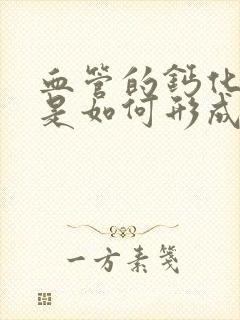 血管的钙化
是如何形成
一方素笺